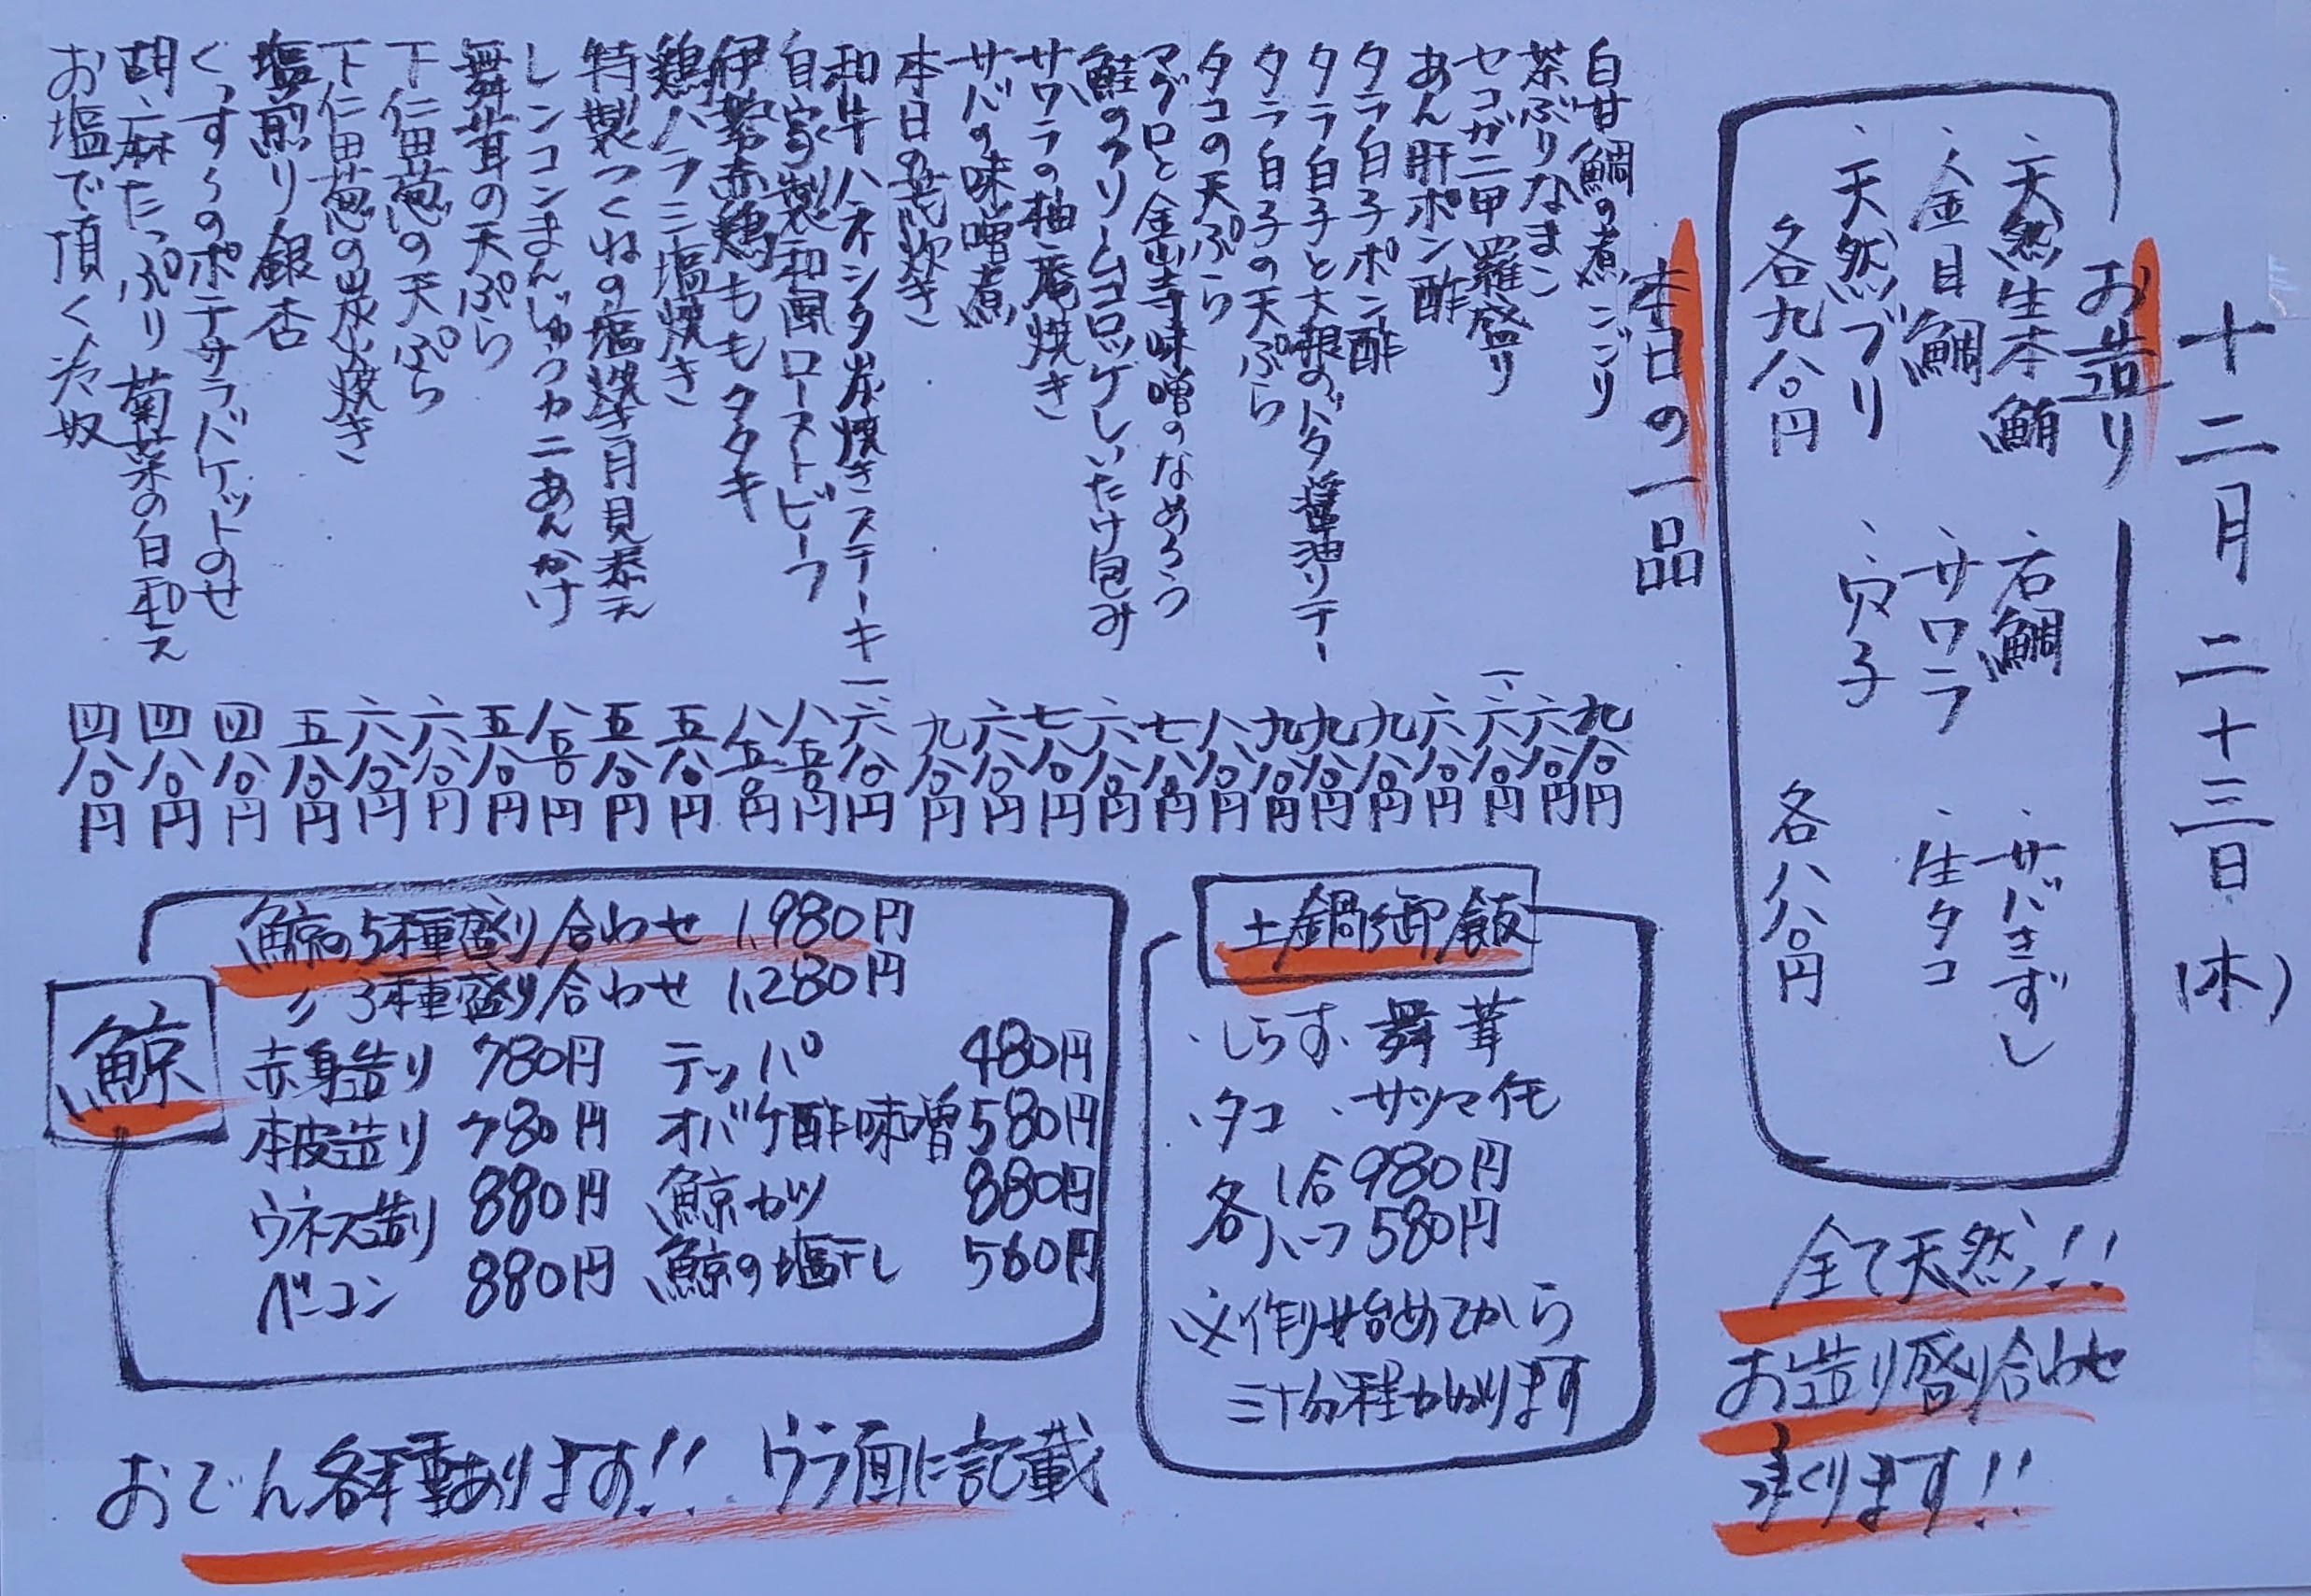 十二月二十三日(木)
お造り
・天然生本鮪 ・石鯛 ・サバきずし
・金目鯛 ・サワラ ・生タコ
・天然ブリ ・穴子
各九八〇円 各八八〇円
全て天然!!
お造り盛り合わせ
承ります!!
本日の一品
白甘鯛の煮こごり 九八〇円
茶ぶりなまこ 六八〇円
セコガニ甲羅盛り 一、六八〇円
あん肝ポン酢 六八〇円
タラ白子ポン酢 九八〇円
タラ白子と大根のバタ醤油ソテー 九八〇円
タラ白子の天ぷら 九八〇円
タコの天ぷら 八八〇円
マグロと金山寺味噌のなめろう 七八〇円
鮭のクリームコロッケしいたけ包み 六八〇円
サワラの柚庵焼き 七八〇円
サバの味噌煮 六八〇円
本日の荒炊き 九八〇円
和牛ハネシタ炭焼きステーキ 一、六八〇円
自家製和風ローストビーフ 八五〇円
伊勢赤鶏ももタタキ 八五〇円
鶏ハラミ塩焼き 五八〇円
特製つくねの塩焼き月見添え 五八〇円
レンコンまんじゅうカニあんかけ 八五〇円
舞茸の天ぷら 五八〇円
下仁田葱の天ぷら 六八〇円
下仁田葱の炭火焼き 六八〇円
塩煎り銀杏 五八〇円
くっすゝのポテサラバケットのせ 四八〇円
胡麻たっぷり菊菜の白和え 四八〇円
お塩で頂く冷奴 四八〇円
土鍋御飯
・しらす ・舞茸
・タコ ・サツマ芋
各1合 980円
各ハーフ 580円
※作り始めてから
三十分程かかります
鯨
鯨の5種盛り合わせ 1,980円
〃 3種盛り合わせ 1,280円
赤身造り 780円 テッパ 480円
本皮造り 780円 オバケ酢味噌 580円
ウネス造り 880円 鯨カツ 880円
ベーコン 880円 鯨の塩干し 560円
おでん各種あります!! ウラ面に記載